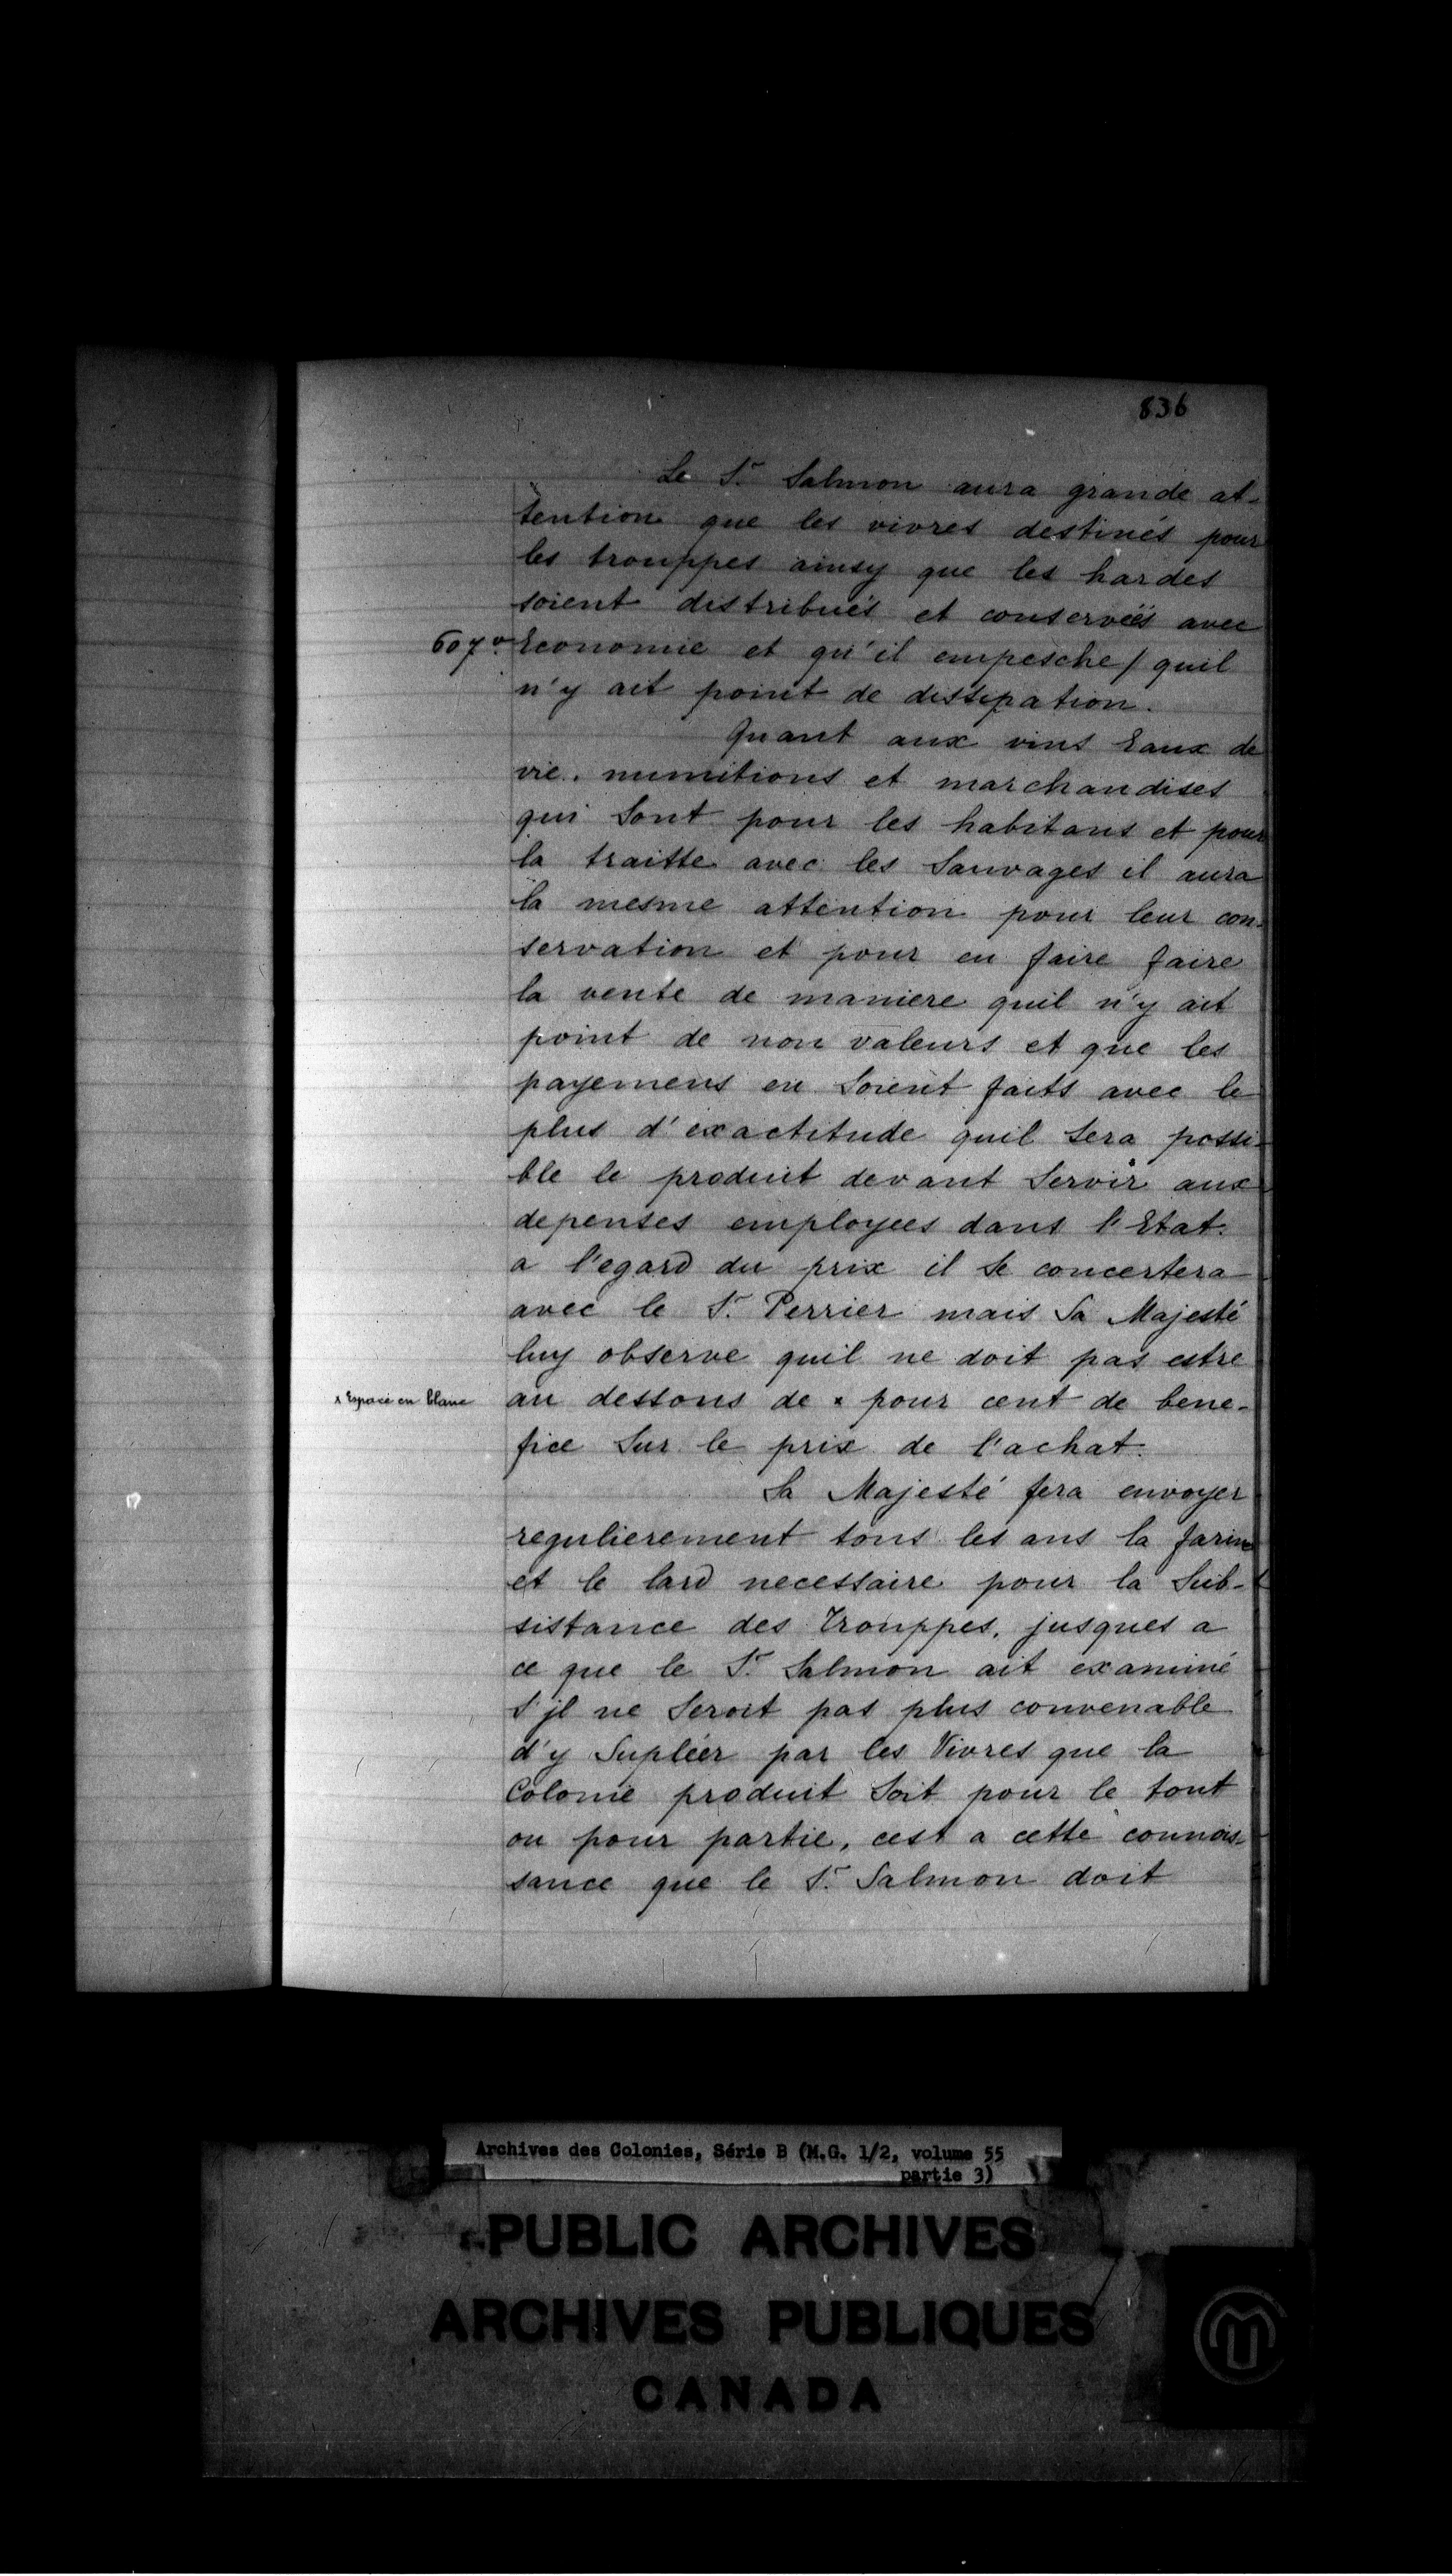 836
Le Sr. Salmon aura grande at-
tention que les vivres destinés pour
les trouppes ainsy que les hardes
soient distribués et conservéés avec
607vo. Economie et qu'il empesche / quil
n'y ait point de dissipation.
Quant aux vins Eaux de
vie. munitions et marchandises
qui Sont pour les habitans et pour
la traitte avec les Sauvages il aura
la mesme attention pour leur con-
servation et pour en faire faire
la vente de maniere quil n'y ait
point de non valeurs et que les
payemens en Soient faits avec le
plus d'exactitude quil Sera possi-
ble le produit devant Servir aux
depenses employees dans l'Etat.
a l'egard du prix il Se concertera
avec le Sr. Perrier mais Sa Majesté
luy observe quil ne doit pas estre
x Espace en blanc au dessous de x pour cent de bene-
fice Sur le prix de l'achat.
Sa Majesté fera envoyer
regulierement tous les ans la farine
et le lard necessaire pour la Sub-
sistance des Trouppes, jusques a
ce que le Sr. Salmon ait examiné
S'jl ne Seroit pas plus convenable
d'y Supléer par les Vivres que la
Colonie produit Soit pour le tout
ou pour partie, cest a cette connois-
sance que le Sr. Salmon doit
Archives des Colonies, Série B (M.G. 1/2, volume 55
partie 3)
PUBLIC ARCHIVES
ARCHIVES PUBLIQUES
CANADA